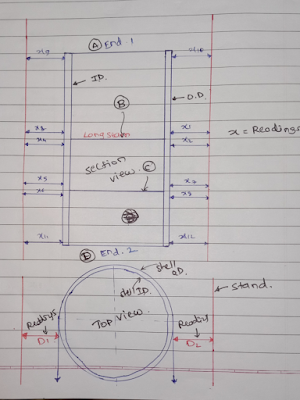 Ⓐ End. 1
x9 x10
ID.
O.D.
Ⓑ
x3 Long seam x1
x4 x2
x = Readings
section
view. Ⓒ
x5 x7
x8
x11 x12
Ⓓ End. 2
shell
OD.
shell ID.
Stand.
Top view.
Readings Readings
D1 D2